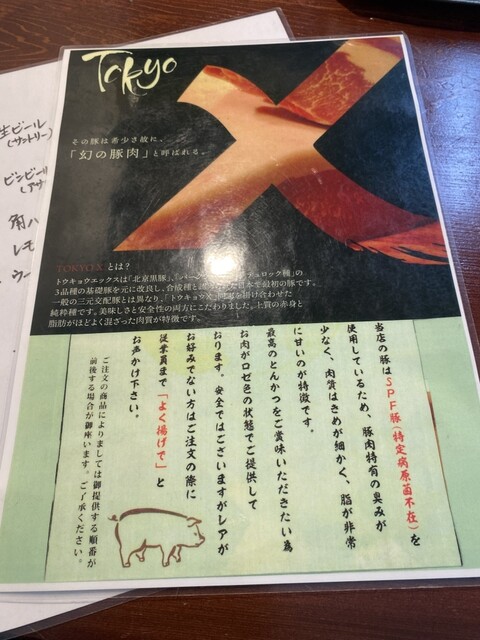 Tokyo
X
その豚は希少さ故に、
「幻の豚肉」と呼ばれる。
TOKYO X とは?
トウキョウエックスは「北京黒豚」、「バー
チュロック種」の
3品種の基礎豚を元に改良し、合成種と
日本で最初の豚です。
一般の三元交配豚とは異なり、「トウキョウX」
を掛け合わせた
純粋種です。美味しさと安全性の両方にこだわりました。上質の赤身と
脂肪がほどよく混ざった肉質が特徴です。
当店の豚はSPF豚(特定病原菌不在)を
使用しているため、豚肉特有の臭みが
少なく、肉質はきめが細かく、脂が非常
に甘いのが特徴です。
最高のとんかつをご賞味いただきたい為
お肉がロゼ色の状態でご提供して
おります。安全ではございますがレアが
お好みでない方はご注文の際に
従業員まで「よく揚げで」と
お声かけ下さい。
ご注文の商品によりましては御提供する順番が
前後する場合が御座います。ご了承ください。
生ビール
(サントリー)
ビンビール
(アサ
角ハ
レモ
ウー